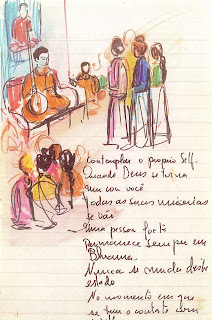 Contemplar o proprio Self.
Quando Deus se torna
um com você
Todas as suas misérias
se vão
Uma pessoa forte
Permanece sempre em
Nunca se muda deste
estado
No momento em que
se tem o contato com